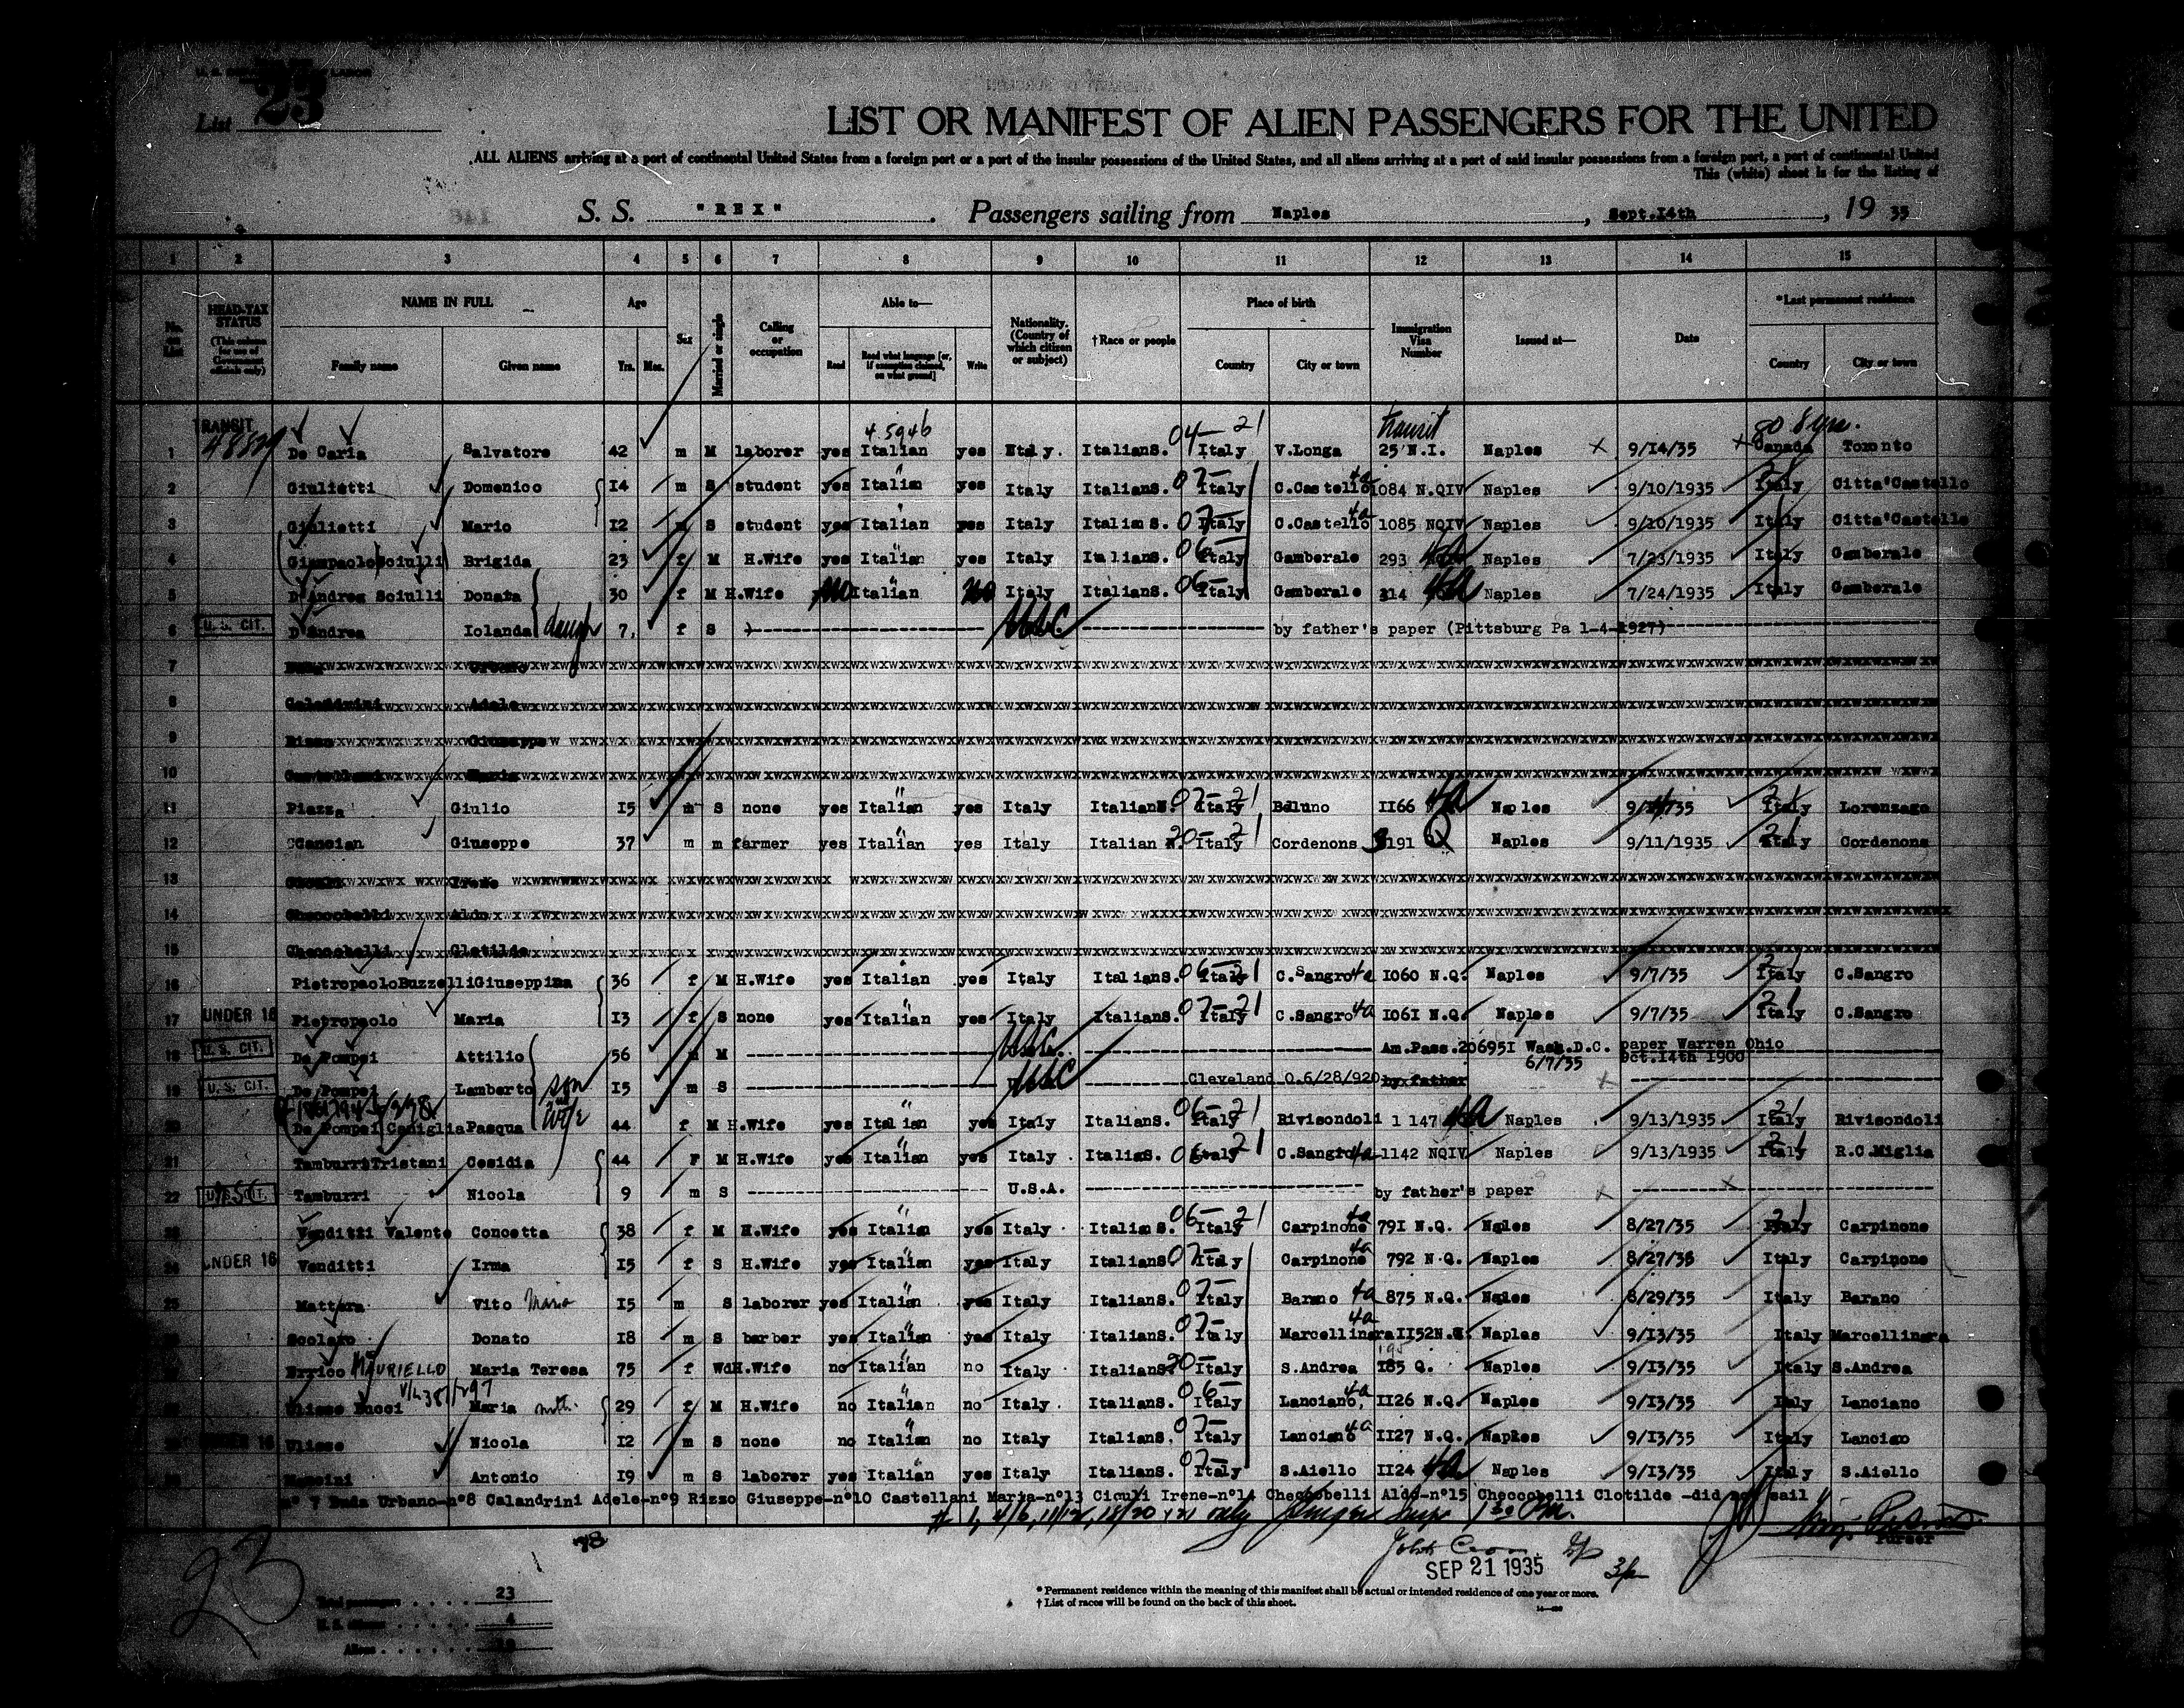 List 23
LIST OR MANIFEST OF ALIEN PASSENGERS FOR THE UNITED
ALL ALIENS arriving at a port of continental United States from a foreign port or a port of the insular possessions of the United States, and all aliens arriving at a port of said insular possessions from a foreign port, a port of continental United
This (white) sheet is for the listing of
S. S. "REX". Passengers sailing from Naples, Sept.14th, 19 35
1 2 3 4 5 6 7 8 9 10 11 12 13 14 15
HEAD-TAX STATUS (This column for use of Government officials only) NAME IN FULL Age Sex Married or single Calling or occupation Able to— Nationality. (Country of which citizen or subject) †Race or people Place of birth Immigration Visa Number Issued at— Date *Last permanent residence
No. on List Family name Given name Yrs. Mos. Read Read what language [or, if exemption claimed, on what ground] Write Country City or town Country City or town
TRANSIT 4 5946 04— 21 transit 8 yrs.
1 De Caria Salvatore 42 m M laborer yes Italian yes Italy. ItalianS. Italy V.Longa 25 N.I. Naples 9/14/35 Canada Toronto
2 Giulietti Domenico 14 m S student yes Italian yes Italy ItalianS. 07— Italy C.Castello 4a 1084 N.QIV Naples 9/10/1935 Italy Citta'Castello
3 Giulietti Mario 12 m S student yes Italian yes Italy Italian S. 07— Italy C.Castello 4a 1085 NQIV Naples 9/10/1935 Italy Citta'Castello
4 (Giampaolo)Sciulli) Brigida 23 f M H.Wife yes Italian yes Italy ItalianS. 06— Italy Gamberale 293 4a Naples 7/23/1935 Italy Gamberale
5 D'Andrea Sciulli Donata 30 f M H.Wife no Italian no Italy ItalianS. 06— Italy Gamberale 314 4a Naples 7/24/1935 Italy Gamberale
6 U.S. CIT. D'Andrea Iolanda daugh 7 f S USC by father's paper (Pittsburg Pa 1-4-1927)
7
8 Calandrini Adele
9 Rizzo Giuseppe
10 Castellani Maria
11 Piazza Giulio 15 m S none yes Italian yes Italy ItalianN. 07— 21 Italy Belluno 1166 4a Naples Italy Lorenzago
12 Cancian Giuseppe 37 m m farmer yes Italian yes Italy Italian N. 20— 21 Italy Cordenons 3191 Q Naples 9/11/1935 21 Italy Cordenons
13 Irene
14 Checcobelli Aldo
15 Checcobelli Clotilde
16 PietropaoloBuzzelliGiuseppina 36 f M H.Wife yes Italian yes Italy ItalianS. 06— 21 Italy C.Sangro 4a 1060 N.Q. Naples 9/7/35 21 Italy C.Sangro
17 UNDER 16 Pietropaolo Maria 13 f S none yes Italian yes Italy ItalianS. 07— 21 Italy C.Sangro 4a 1061 N.Q. Naples 9/7/35 21 Italy C.Sangro
18 U.S. CIT. De Pompei Attilio 56 M USC. Am.Pass.206951 Wash.D.C. paper Warren Ohio
6/7/35 Oct.14th 1900
19 U.S. CIT. De Pompei Lamberto son 15 m S USC Cleveland O.6/28/920 by father
20 De Pompei Caniglia Pasqua wife 44 f M H.Wife yes Italian yes Italy ItalianS. 06— 21 Italy Rivisondoli 1147 4a Naples 9/13/1935 21 Italy Rivisondoli
21 TamburriTristani Cesidia 44 F M H.Wife yes Italian yes Italy ItaliaS. 06— 21 Italy C.Sangro 4a 1142 NQIV Naples 9/13/1935 21 Italy R.C.Miglia
22 U.S. CIT. Tamburri Nicola 9 m S U.S.A. by father's paper
23 Venditti Valente Concetta 38 f M H.Wife yes Italian yes Italy Italian S. 06— 21 Italy Carpinone 4a 791 N.Q. Naples 8/27/35 21 Italy Carpinone
24 UNDER 16 Venditti Irma 15 f S H.Wife yes Italian yes Italy ItalianS 07— Italy Carpinone 4a 792 N.Q. Naples 8/27/35 Italy Carpinone
25 Mattera Vito Mario 15 m S laborer yes Italian yes Italy ItalianS. 07— Italy Barano 4a 875 N.Q. Naples 8/29/35 Italy Barano
26 Scolaro Donato 18 m S barber yes Italian yes Italy ItalianS. 07— Italy Marcellinara 4a 1152N.Q. Naples 9/13/35 Italy Marcellinara
27 Errico MAURIELLO Maria Teresa 75 f Wd H.Wife no Italian no Italy ItalianS. 20— Italy S.Andrea 185 Q. Naples 9/13/35 Italy S.Andrea
28 Ulisse Bucci Maria 29 f M H.Wife no Italian no Italy. ItalianS. 06— Italy Lanciano, 4a 1126 N.Q. Naples 9/13/35 Italy Lanciano
29 UNDER 16 Ulisse Nicola 12 m S none no Italian no Italy ItalianS. 07— Italy Lanciano 4a 1127 N.Q. Naples 9/13/35 Italy Lanciano
30 Mancini Antonio 19 m S laborer yes Italian yes Italy ItalianS. 07— Italy S.Aiello 1124 4a Naples 9/13/35 Italy S.Aiello
n° 7 Buda Urbano-n°8 Calandrini Adele-n°9 Rizzo Giuseppe-n°10 Castellani Maria-n°13 Ciculi Irene-n°14 Checcobelli Aldo-n°15 Checcobelli Clotilde -did not sail
Purser
78
SEP 21 1935
23
Total passengers 23
U. S. citizens 4
Aliens 19
* Permanent residence within the meaning of this manifest shall be actual or intended residence of one year or more.
† List of races will be found on the back of this sheet.